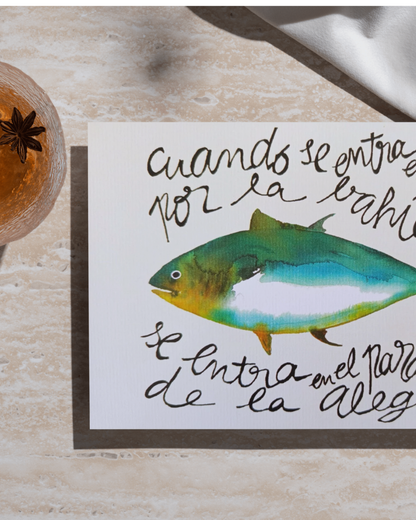 cuando se entra
por la bahí
se entra en el par
de la aleg